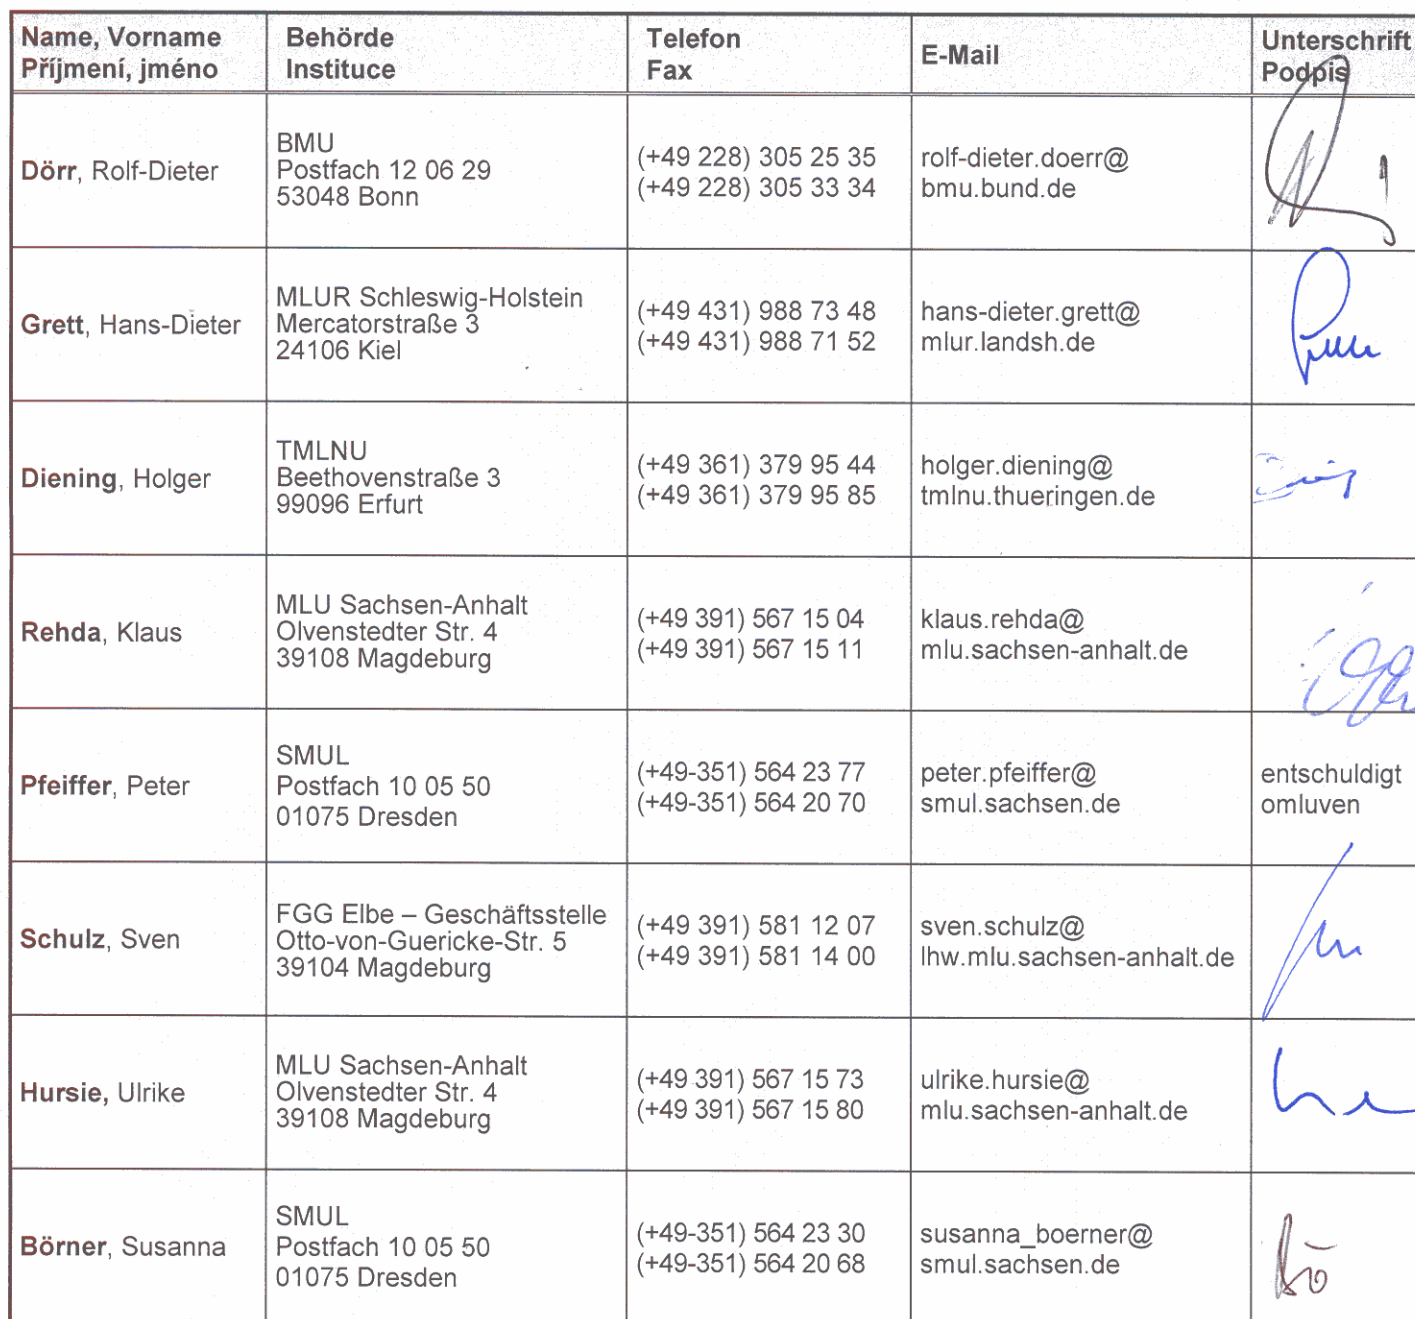 Name, Vorname
Příjmení, jméno
Behörde
Instituce
Telefon
Fax
E-Mail
Unterschrift
Podpis
Dörr, Rolf-Dieter
BMU
Postfach 12 06 29
53048 Bonn
(+49 228) 305 25 35
(+49 228) 305 33 34
rolf-dieter.doerr@
bmu.bund.de
Grett, Hans-Dieter
MLUR Schleswig-Holstein
Mercatorstraße 3
24106 Kiel
(+49 431) 988 73 48
(+49 431) 988 71 52
hans-dieter.grett@
mlur.landsh.de
Diening, Holger
TMLNU
Beethovenstraße 3
99096 Erfurt
(+49 361) 379 95 44
(+49 361) 379 95 85
holger.diening@
tmlnu.thueringen.de
Rehda, Klaus
MLU Sachsen-Anhalt
Olvenstedter Str. 4
39108 Magdeburg
(+49 391) 567 15 04
(+49 391) 567 15 11
klaus.rehda@
mlu.sachsen-anhalt.de
Pfeiffer, Peter
SMUL
Postfach 10 05 50
01075 Dresden
(+49-351) 564 23 77
(+49-351) 564 20 70
peter.pfeiffer@
smul.sachsen.de
entschuldigt
omluven
Schulz, Sven
FGG Elbe – Geschäftsstelle
Otto-von-Guericke-Str. 5
39104 Magdeburg
(+49 391) 581 12 07
(+49 391) 581 14 00
sven.schulz@
lhw.mlu.sachsen-anhalt.de
Hursie, Ulrike
MLU Sachsen-Anhalt
Olvenstedter Str. 4
39108 Magdeburg
(+49 391) 567 15 73
(+49 391) 567 15 80
ulrike.hursie@
mlu.sachsen-anhalt.de
Börner, Susanna
SMUL
Postfach 10 05 50
01075 Dresden
(+49-351) 564 23 30
(+49-351) 564 20 68
susanna_boerner@
smul.sachsen.de